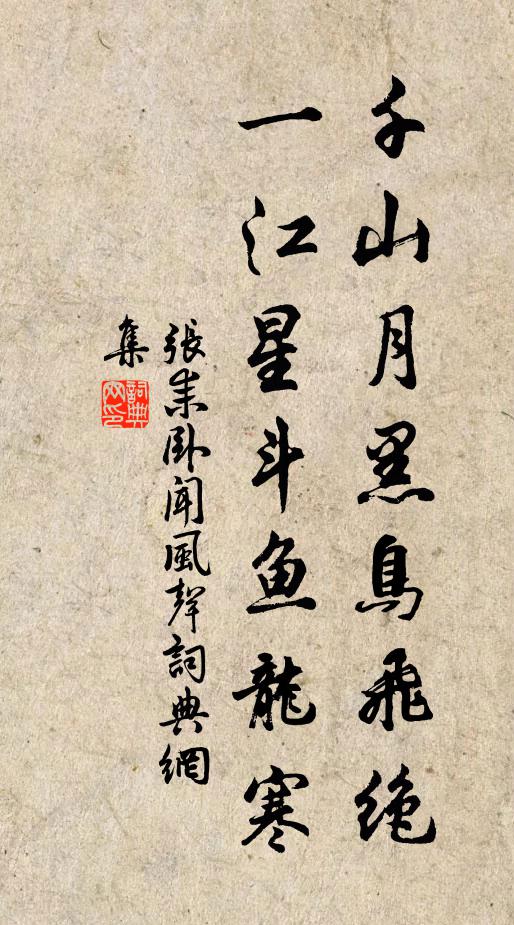 千山月黑鳥飛絕
一江星斗魚龍寒
張耒臥聞風聲詞典網
集
詞典网印